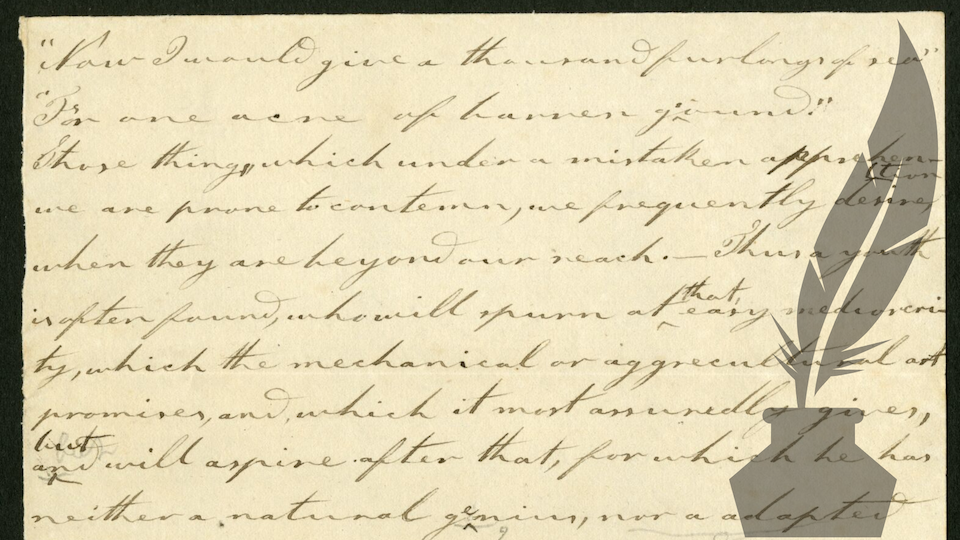 "Now I would give a thousand furlongs of sea"
"For one acre of barren ground."
Those things, which under a mistaken apprehen-
tion
we are prone to contemn, we frequently desire,
when they are beyond our reach.— Thus a youth
is often found, who will spurn at that easy mediocri-
ty, which the mechanical or aggrecultural art
promises, and, which it most assuredly gives,
but
and will aspire after that, for which he has
neither a natural genius, nor a adapted